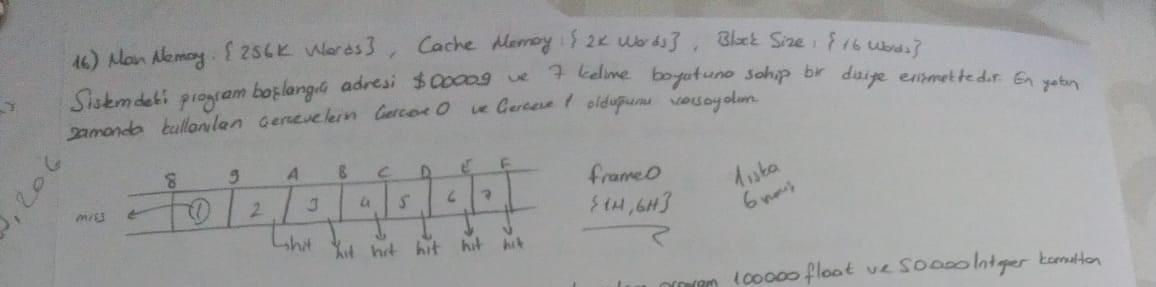 16) Man Memory : {256K Words}, Cache Memory : {2K Words}, Block Size : {16 Words}
Sistemdeki program başlangıç adresi $00009 ve 7 kelime boyutuna sahip bir diziye erişmektedir. En yakın
zamanda kullanılan çerçevelerin Çerçeve 0 ve Çerçeve 1 olduğunu varsayalım
8 9 A B C D E F
miss 1 2 3 4 5 6 7
hit hit hit hit hit hit
frame 0
{1M, 6H}
1 ıska
program 100000 float ve 50000 Integer komuttan